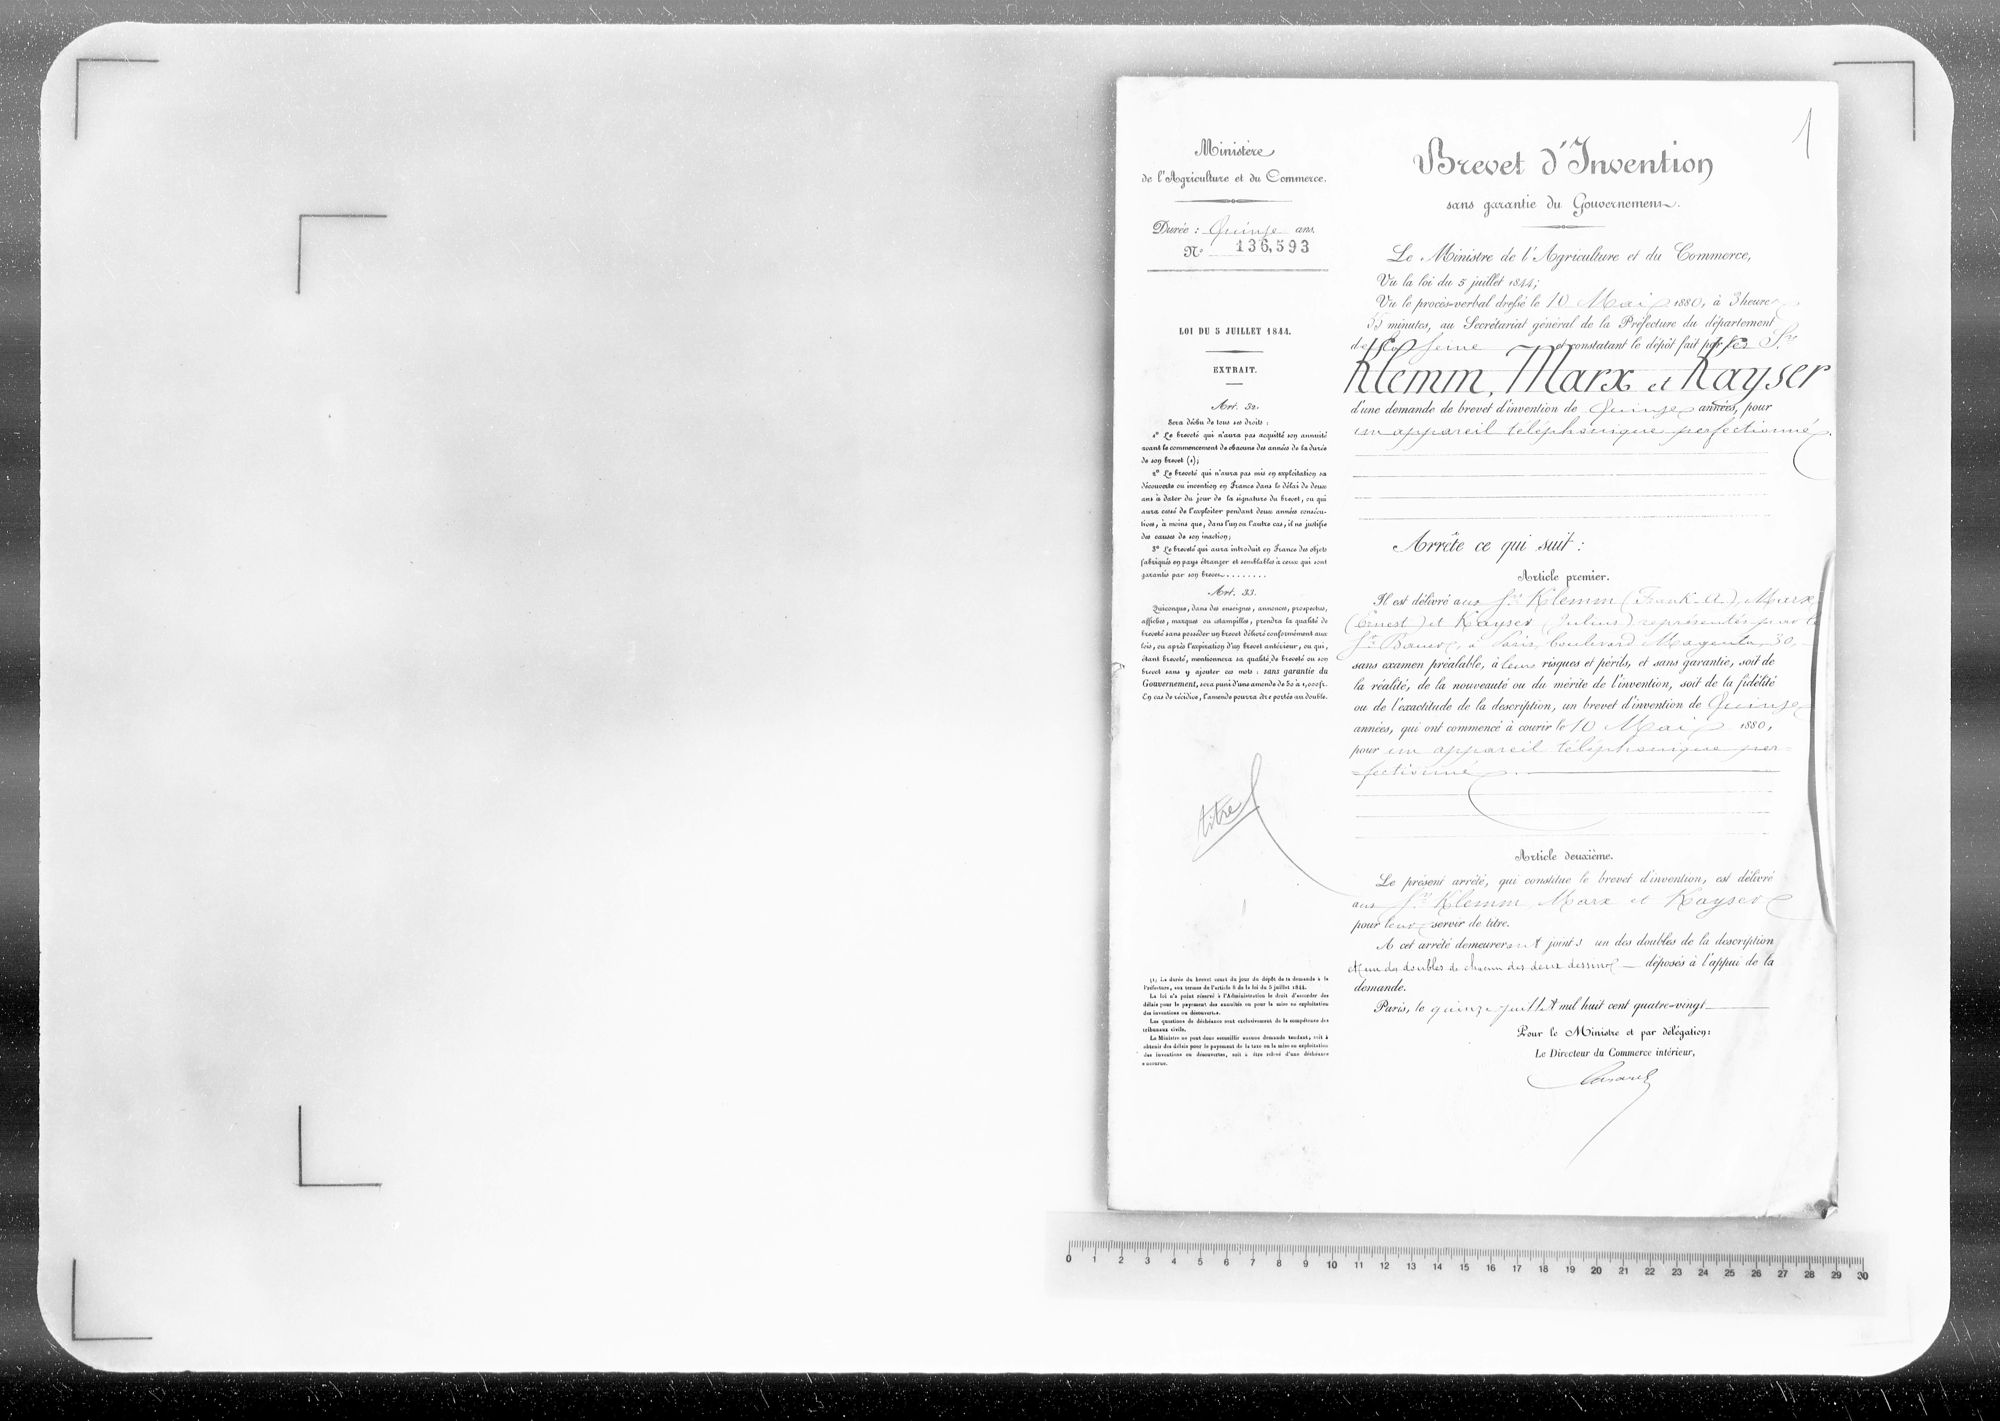 1
Ministère
de l'Agriculture et du Commerce.
Durée : Quinze ans.
N° 136,593
LOI DU 5 JUILLET 1844.
EXTRAIT.
Art. 32.
Sera déchu de tous ses droits :
1° Le breveté qui n'aura pas acquitté son annuité
avant le commencement de chacune des années de la durée
de son brevet (1);
2° Le breveté qui n'aura pas mis en exploitation sa
découverte ou invention en France dans le délai de deux
ans à dater du jour de la signature du brevet, ou qui
aura cessé de l'exploiter pendant deux années consécu-
tives, à moins que, dans l'un ou l'autre cas, il ne justifie
des causes de son inaction;
3° Le breveté qui aura introduit en France des objets
fabriqués en pays étranger et semblables à ceux qui sont
garantis par son brevet........
Art. 33.
Quiconque, dans des enseignes, annonces, prospectus,
affiches, marques ou estampilles, prendra la qualité de
breveté sans posséder un brevet délivré conformément aux
lois, ou après l'expiration d'un brevet antérieur, ou qui,
étant breveté, mentionnera sa qualité de breveté ou son
brevet sans y ajouter ces mots : sans garantie du
Gouvernement, sera puni d'une amende de 50 à 1,000 fr.
En cas de récidive, l'amende pourra être portée au double.
titre
(1) La durée du brevet court du jour du dépôt de la demande à la
Préfecture, aux termes de l'article 8 de la loi du 5 juillet 1844.
La loi n'a point réservé à l'Administration le droit d'accorder des
délais pour le payement des annuités ou pour la mise en exploitation
des inventions ou découvertes.
Les questions de déchéance sont exclusivement de la compétence des
tribunaux civils.
Le Ministre ne peut donc accueillir aucune demande tendant, soit à
obtenir des délais pour le payement de la taxe ou la mise en exploitation
des inventions ou découvertes, soit à être relevé d'une déchéance
encourue.
Brevet d'Invention
sans garantie du Gouvernement.
Le Ministre de l'Agriculture et du Commerce,
Vu la loi du 5 juillet 1844;
Vu le procès-verbal dressé le 10 Mai 1880, à 3 heures
55 minutes, au Secrétariat général de la Préfecture du département
de la Seine et constatant le dépôt fait par les Srs
Klemm, Marx et Kayser
d'une demande de brevet d'invention de Quinze années, pour
un appareil téléphonique perfectionné
Arrête ce qui suit :
Article premier.
Il est délivré aux Srs Klemm (Frank-A), Marx
(Ernest) et Kayser (Julius) représentés par le
Sr à Paris, boulevard Magenta, 30,
sans examen préalable, à leurs risques et périls, et sans garantie, soit de
la réalité, de la nouveauté ou du mérite de l'invention, soit de la fidélité
ou de l'exactitude de la description, un brevet d'invention de Quinze
années, qui ont commencé à courir le 10 Mai 1880,
pour un appareil téléphonique per-
fectionné
Article deuxième.
Le présent arrêté, qui constitue le brevet d'invention, est délivré
aux Srs Klemm, Marx et Kayser
pour leur servir de titre.
A cet arrêté demeureront joints un des doubles de la description
et un des doubles de chacun des deux dessins déposés à l'appui de la
demande.
Paris, le quinze juillet mil huit cent quatre-vingt
Pour le Ministre et par délégation:
Le Directeur du Commerce intérieur,
0 1 2 3 4 5 6 7 8 9 10 11 12 13 14 15 16 17 18 19 20 21 22 23 24 25 26 27 28 29 30